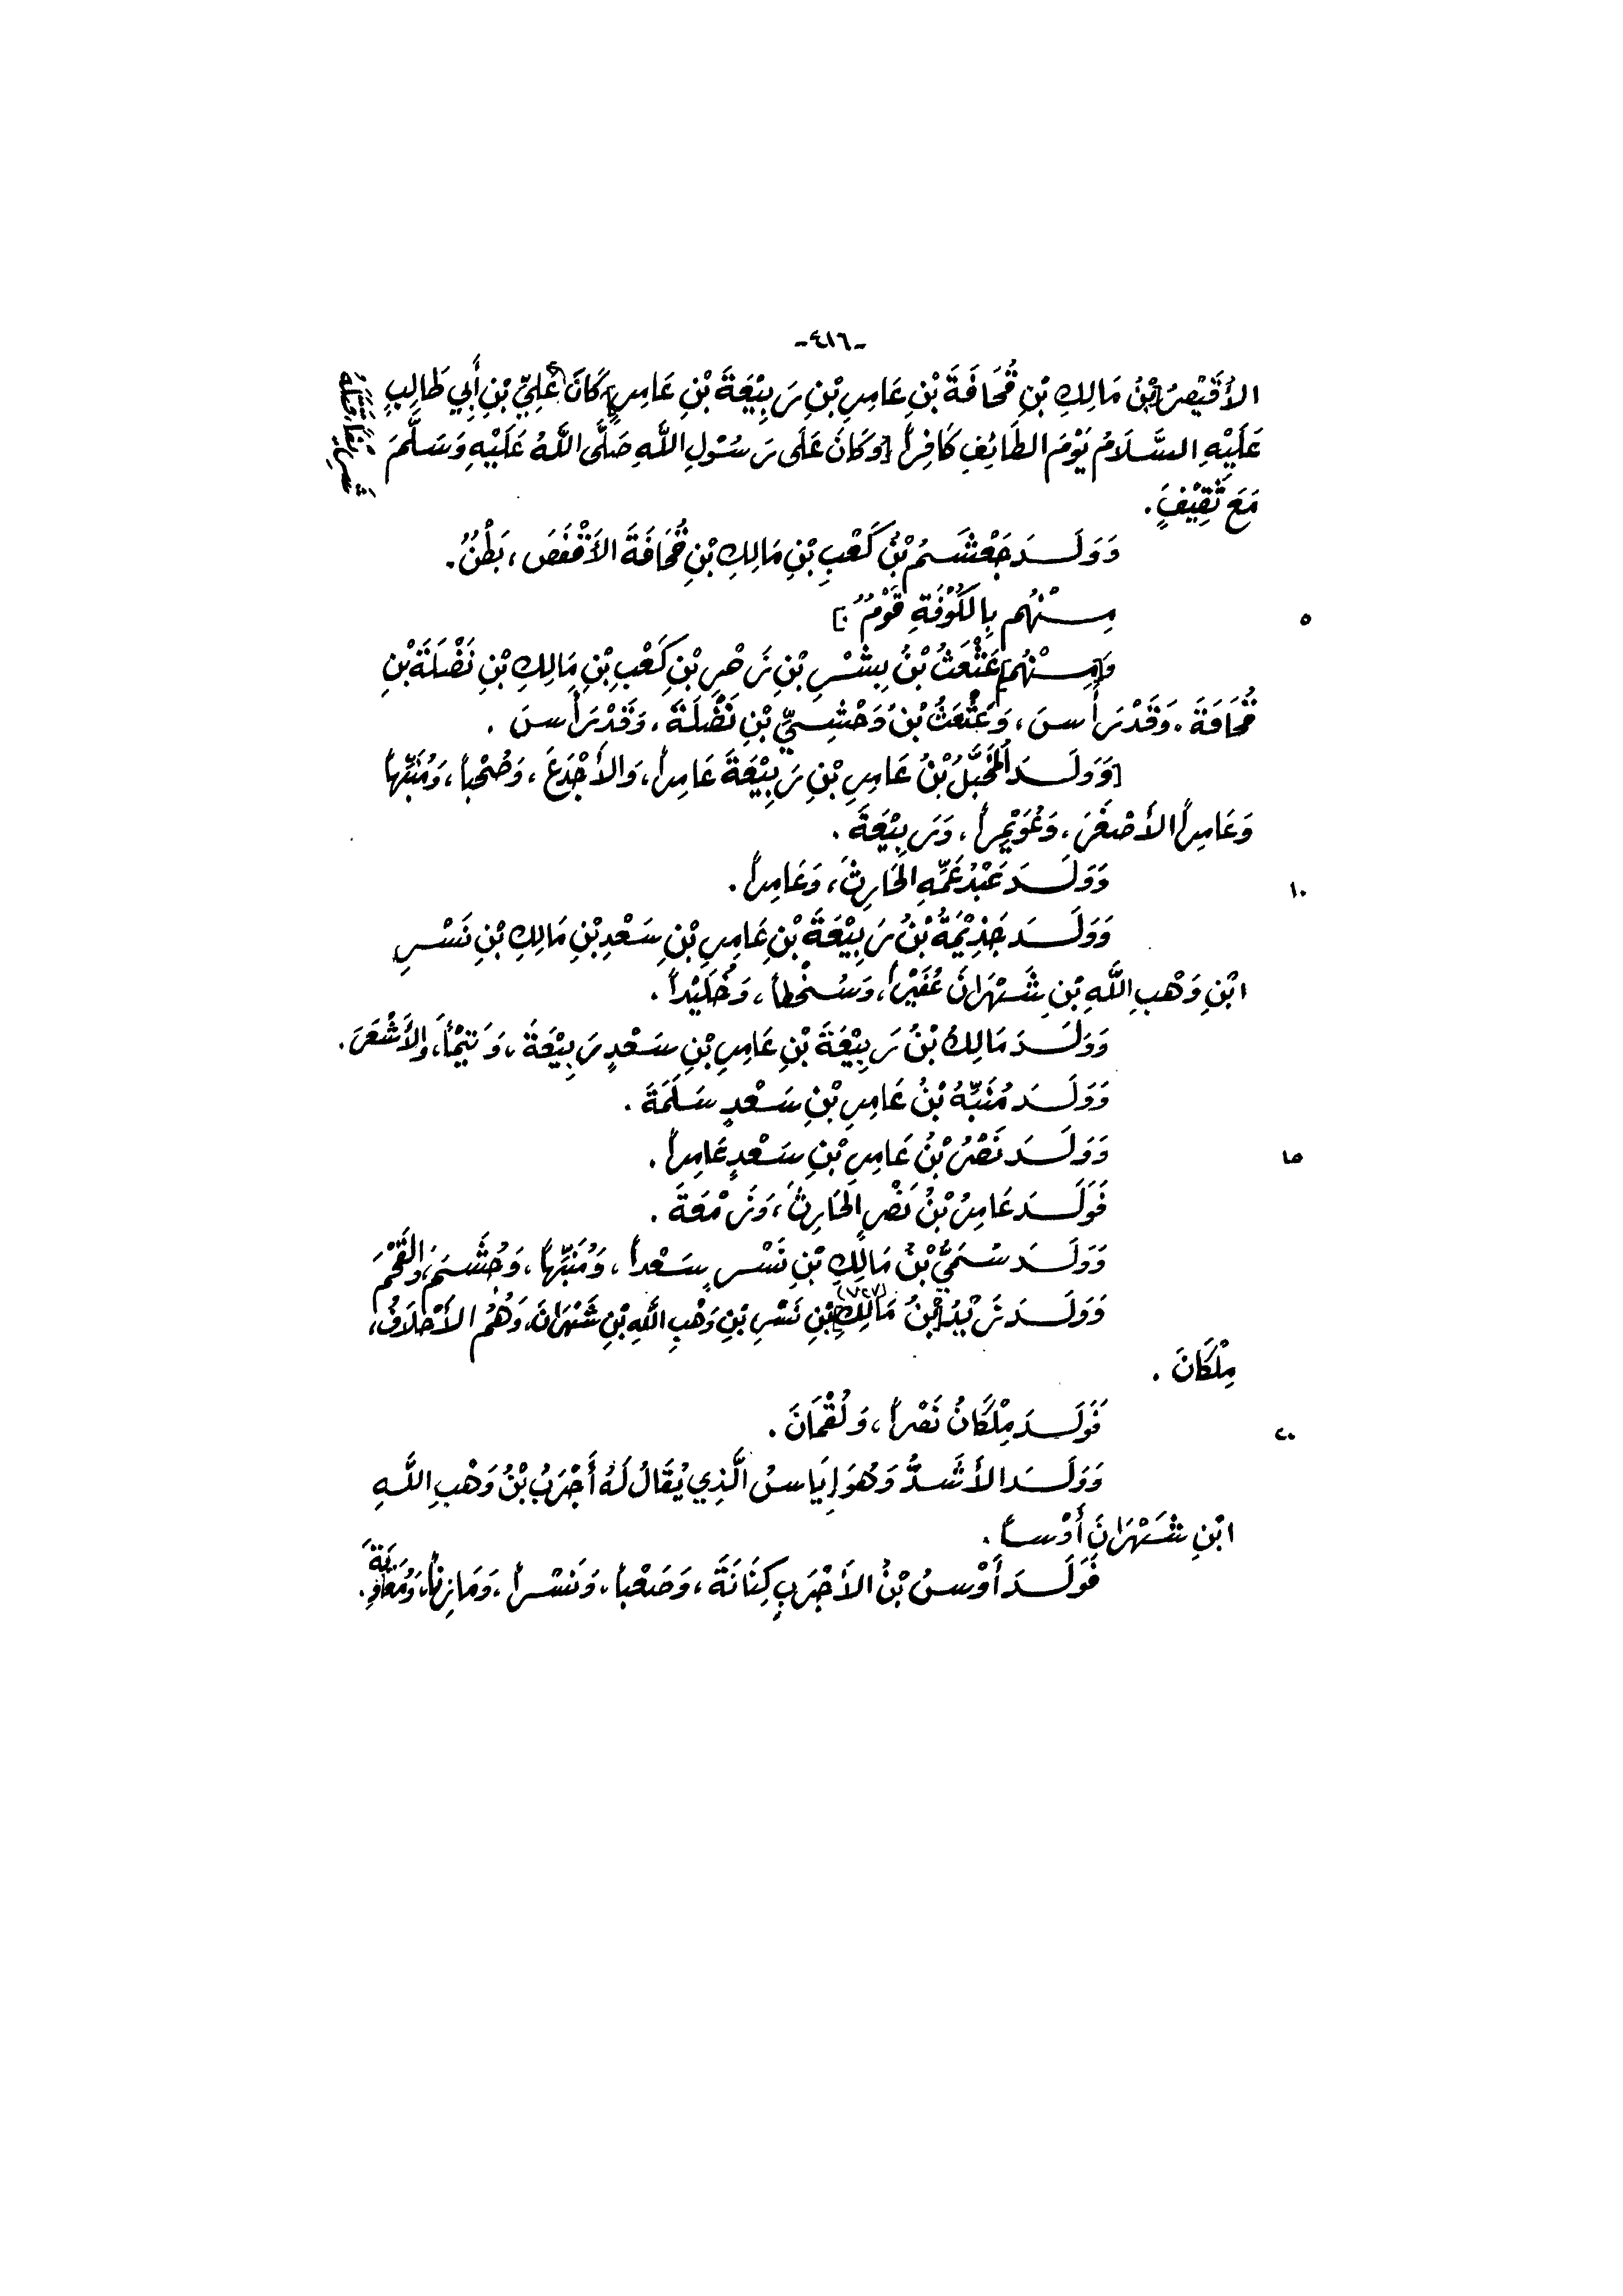 -٤١٦-
الأُقَيْصِرُ [بْنُ مَالِكِ بْنِ قُحَافَةَ بْنِ عَامِرِ بْنِ رَبِيْعَةَ بْنِ عَامِرٍ] كَانَ عَلِيُّ بْنِ أَبِي طَالِبٍ
عَلَيْهِ السَّلَامُ يَوْمَ الطَائِفِ كَافِراً [وَكَانَ عَلَى رَسُوْلِ اللَّهِ صَلَّى اللَّهُ عَلَيْهِ وَسَلَّمَ
مَعَ ثَقِيْفٍ.
وَوَلَدَ جَعْشَمُ بْنُ كَعْبِ بْنِ مَالِكِ بْنِ قُحَافَةَ الأَقْفَصَ، بَطْنٌ.
٥
مِنْهُم بِالكُوْفَةِ قَوْمٌ.]
وَ[مِنْهُم] عَثْعَثُ بْنُ بِشْرِ بْنِ زَحْرِ بْنِ كَعْبِ بْنِ مَالِكِ بْنِ نَضْلَةَ بْنِ
قُحَافَةَ. وَقَدْ رَأَسَ، وَعَثْعَثُ بْنُ وَحْشِيِّ بْنِ نَضْلَةَ، وَقَدْ رَأَسَ.
[وَوَلَدَ المُخَبَّلُ بْنُ عَامِرِ بْنِ رَبِيْعَةَ عَامِراً، وَالأَجْدَعَ، وَصُحْباً، وَمُنَبِّهاً
وَعَامِراً الأَصْغَرَ، وَعُوَيْمِراً، وَرَبِيْعَةَ.
١٠
وَوَلَدَ عَبْدُ عَمِّهِ الحَارِثَ، وَعَامِراً.
وَوَلَدَ جَذِيْمَةُ بْنُ رَبِيْعَةَ بْنِ عَامِرِ بْنِ سَعْدِ بْنِ مَالِكِ بْنِ نَسْرِ
ابْنِ وَهْبِ اللَّهِ بْنِ شَهْرَانَ عُفَيْراً، وَسُخْطاً، وَخُلَيْداً.
وَوَلَدَ مَالِكُ بْنُ رَبِيْعَةَ بْنِ عَامِرِ بْنِ سَعْدٍ رَبِيْعَةَ، وَتَيْماً، وَالأَشْعَرَ.
وَوَلَدَ مُنَبِّهُ بْنُ عَامِرِ بْنِ سَعْدٍ سَلَمَةَ.
١٥
وَوَلَدَ نَصْرُ بْنُ عَامِرِ بْنِ سَعْدٍ عَامِراً.
فَوَلَدَ عَامِرُ بْنُ نَصْرٍ الحَارِثَ، وَزَمْعَةَ.
وَوَلَدَ سُمَيُّ بْنُ مَالِكِ بْنِ نَسْرٍ سَعْداً، وَمُنَبِّهاً، وَجُشَمَ، وَالقَحْمَ
وَوَلَدَ زَيْدُ [بْنُ مَالِكِ] (٧٢٧) بْنِ نَسْرِ بْنِ وَهْبِ اللَّهِ بْنِ شَهْرَانَ، وَهُمُ الأَحْلَافُ،
مِلْكَانَ.
٢٠
فَوَلَدَ مِلْكَانُ نَصْراً، وَلُقْمَانَ.
وَوَلَدَ الأَشَدُّ وَهُوَ إِيَاسُ الَّذِي يُقَالُ لَهُ أَجْرَبُ بْنُ وَهْبِ اللَّهِ
ابْنِ شَهْرَانَ أَوْساً.
فَوَلَدَ أَوْسُ بْنُ الأَجْرَبِ كِنَانَةَ، وَصَعْباً، وَنَسْراً، وَمَازِناً، وَمُعَاوِيَةَ.